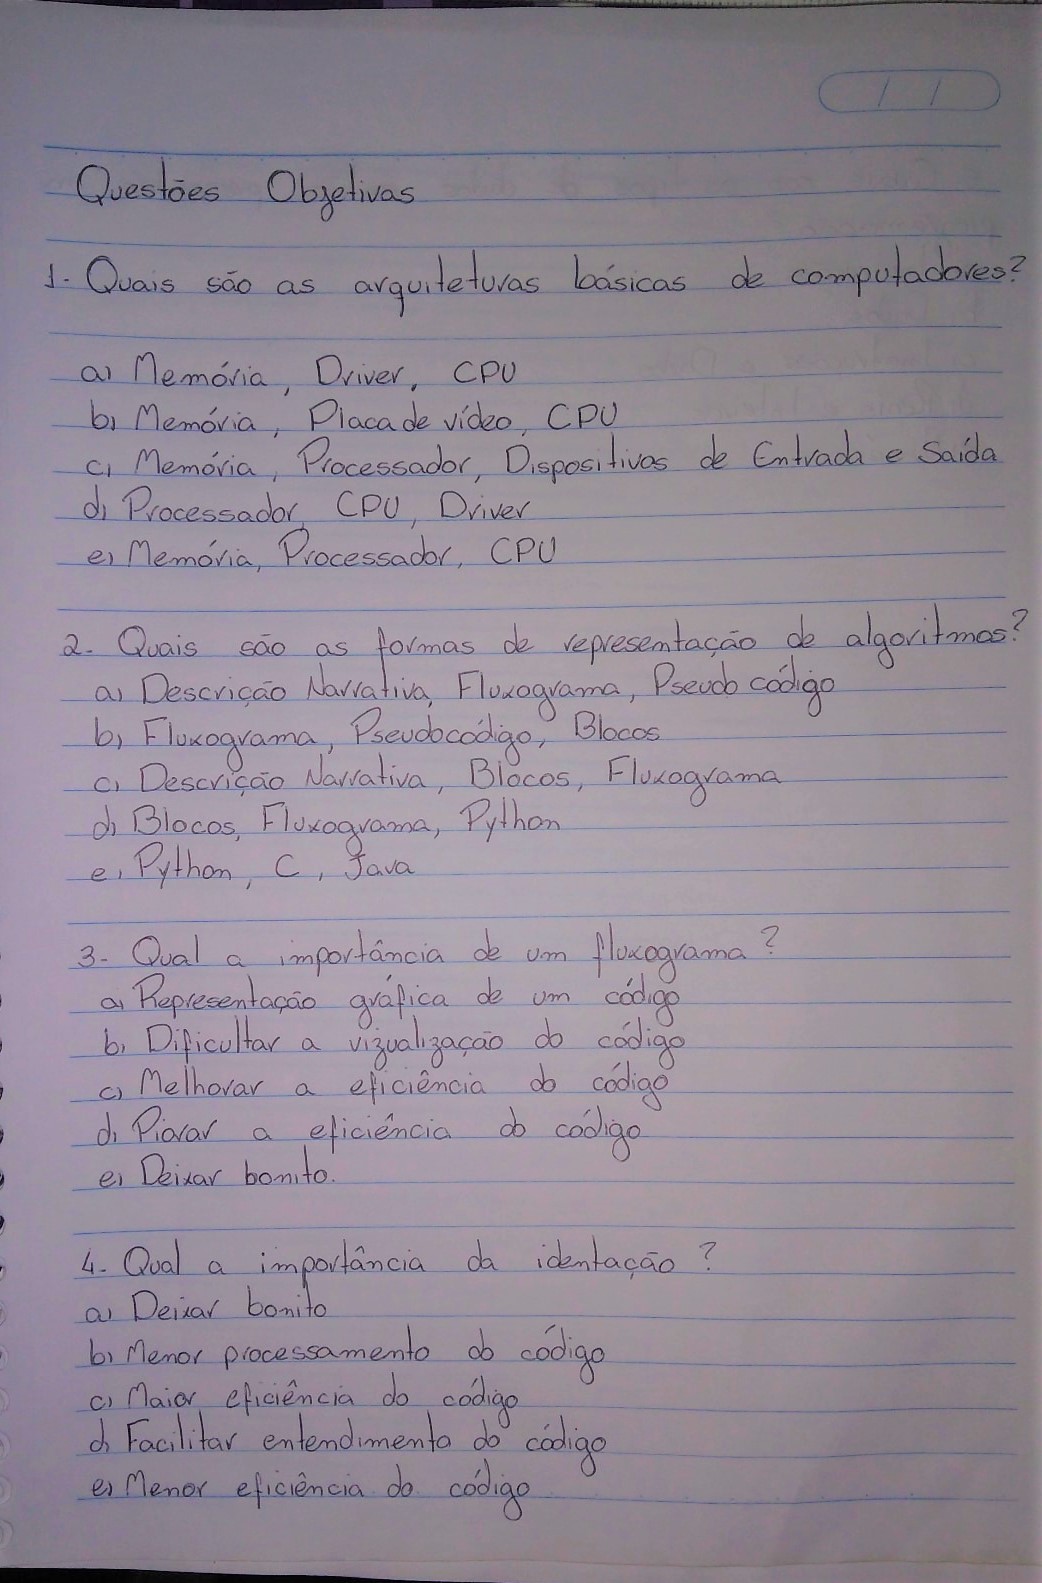 Questões Objetivas
1- Quais são as arquiteturas básicas de computadores?
a) Memória, Driver, CPU
b) Memória, Placa de vídeo, CPU
c) Memória, Processador, Dispositivos de Entrada e Saída
d) Processador, CPU, Driver
e) Memória, Processador, CPU
2- Quais são as formas de representação de algoritmos?
a) Descrição Narrativa, Fluxograma, Pseudo código
b) Fluxograma, Pseudocódigo, Blocos
c) Descrição Narrativa, Blocos, Fluxograma
d) Blocos, Fluxograma, Python
e) Python, C, Java
3- Qual a importância de um fluxograma?
a) Representação gráfica de um código
b) Dificultar a vizualização do código
c) Melhorar a eficiência do código
d) Piorar a eficiência do código
e) Deixar bonito.
4- Qual a importância da identação?
a) Deixar bonito
b) Menor processamento do código
c) Maior eficiência do código
d) Facilitar entendimento do código
e) Menor eficiência do código